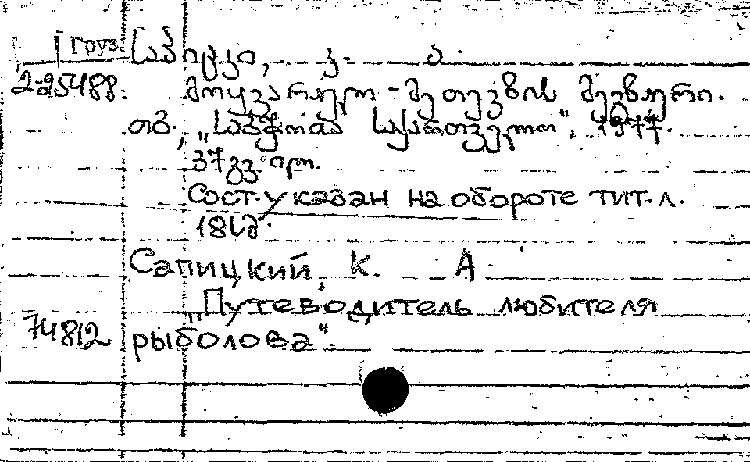 Груз. საპიცკი, კ. ა.
2-25488. მოყვარულ-მეთევზის მეგზური.
თბ., „საბჭოთა საქართველო“, 1977.
37გვ. ილ.
Сост. указан на обороте тит. л.
Сапицкий, К. А
„Путеводитель любителя
74812 рыболова“